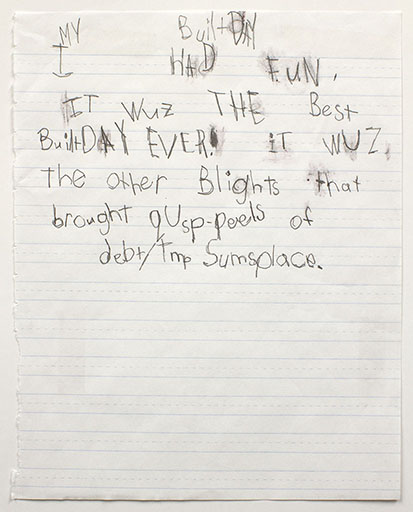 MY BuiltDAY
I hAD FUN.
IT Wuz THE Best
BuiltDAY EVER! iT WUZ.
the other Blights that
brought qUsp-peels of
debt/Tmp Sumsplace.